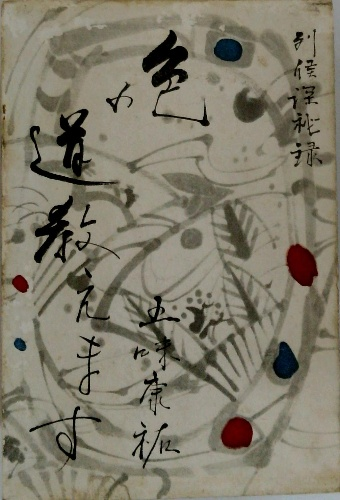 秘録
色の
道教えます
五味康祐